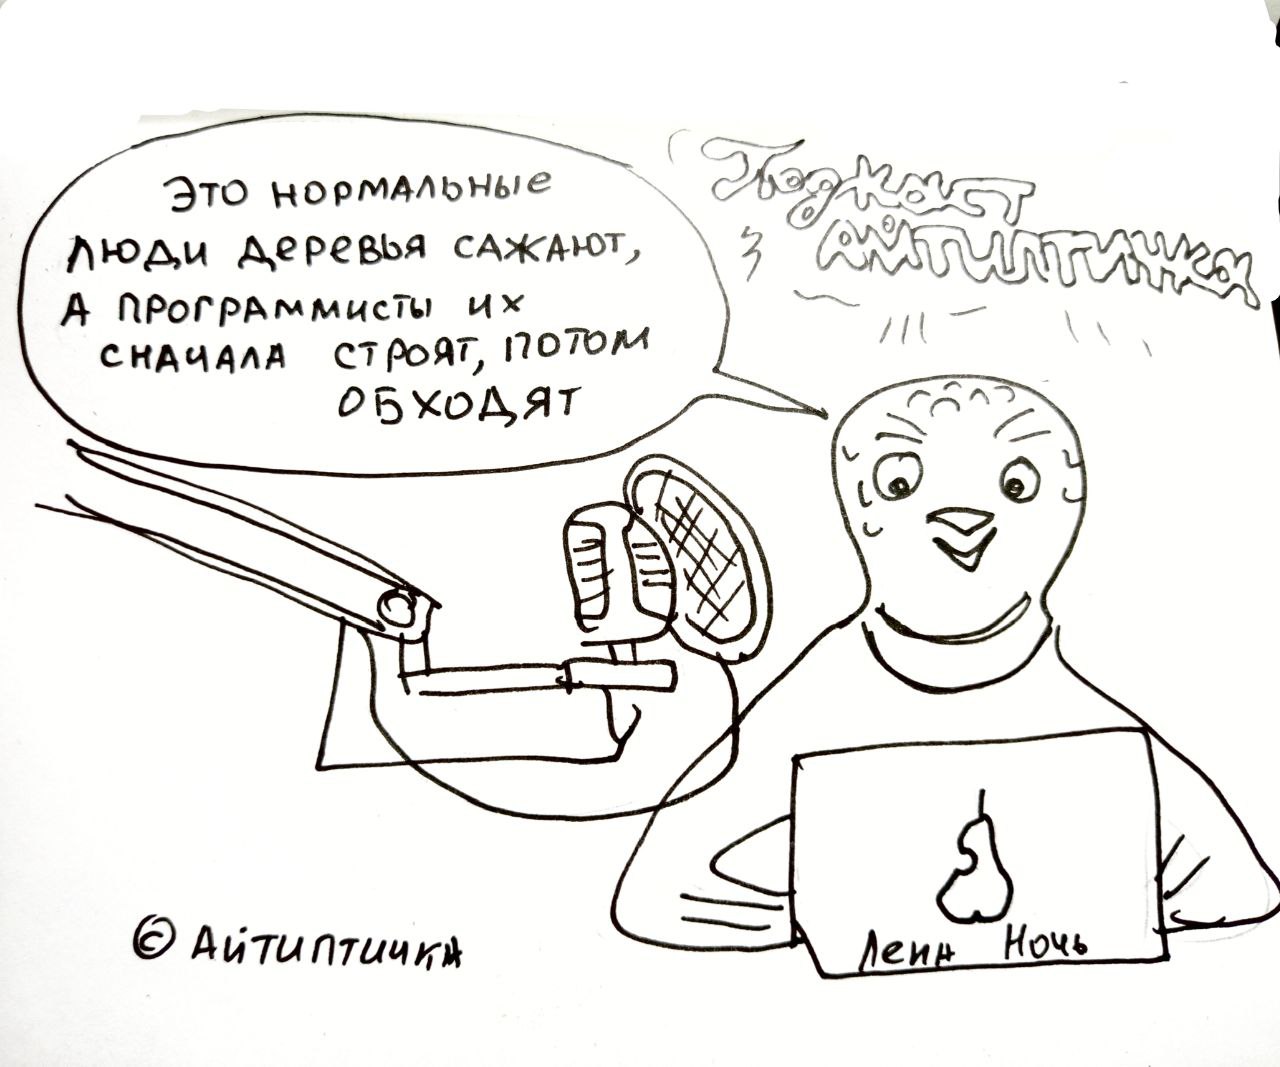 Это нормальные
люди деревья сажают,
а программисты их
сначала строят, потом
обходят
Подкаст
Айтиптичка
Лена Ночь
© Айтиптичка